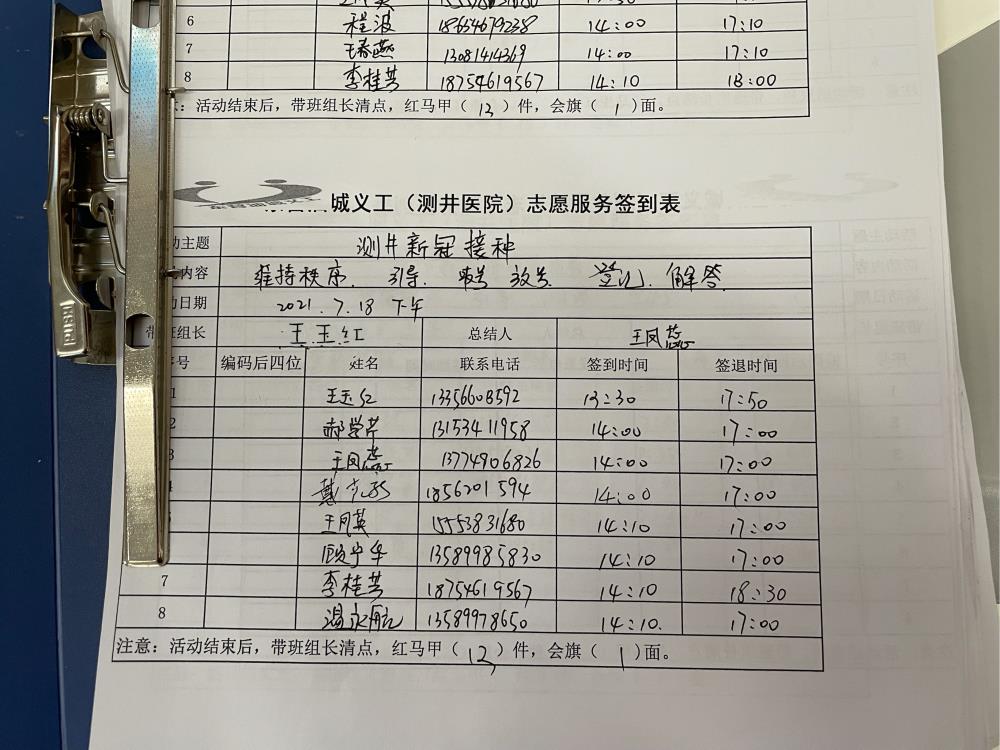 6 程波 18654679238 14:00 17:10
7 王春燕 13081414369 14:00 17:10
8 李桂芳 18754619567 14:10 18:00
：活动结束后，带班组长清点，红马甲（ 13 ）件，会旗（ 1 ）面。
城义工（测井医院）志愿服务签到表
动主题 测井新冠接种
内容 维持秩序. 引导. 放号 登记. 解答
动日期 2021.7.18 下午
带班组长 王玉红 总结人 王凤蕊
序号 编码后四位 姓名 联系电话 签到时间 签退时间
1 王玉红 13356608592 13:30 17:50
2 郝学芹 13153411958 14:00 17:00
3 王凤蕊 13774906826 14:00 17:00
戴 1856201594 14:00 17:00
王凤英 15553831680 14:10 17:00
顾宁华 13589985830 14:10 17:00
7 李桂芳 18754619567 14:10 18:30
8 温永航 13589978650 14:10. 17:00
注意：活动结束后，带班组长清点，红马甲（ 13 ）件，会旗（ 1 ）面。